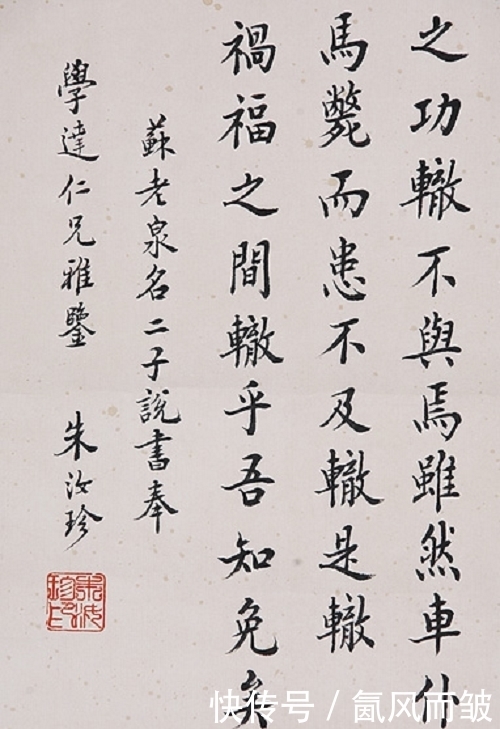 之功轍不與焉雖然車仆
馬斃而患不及轍是轍
禍福之間轍乎吾知免矣
蘇老泉名二子說書奉
學達仁兄雅鑒 朱汝珍
朱汝珍印
快传号 / 氤风而皱